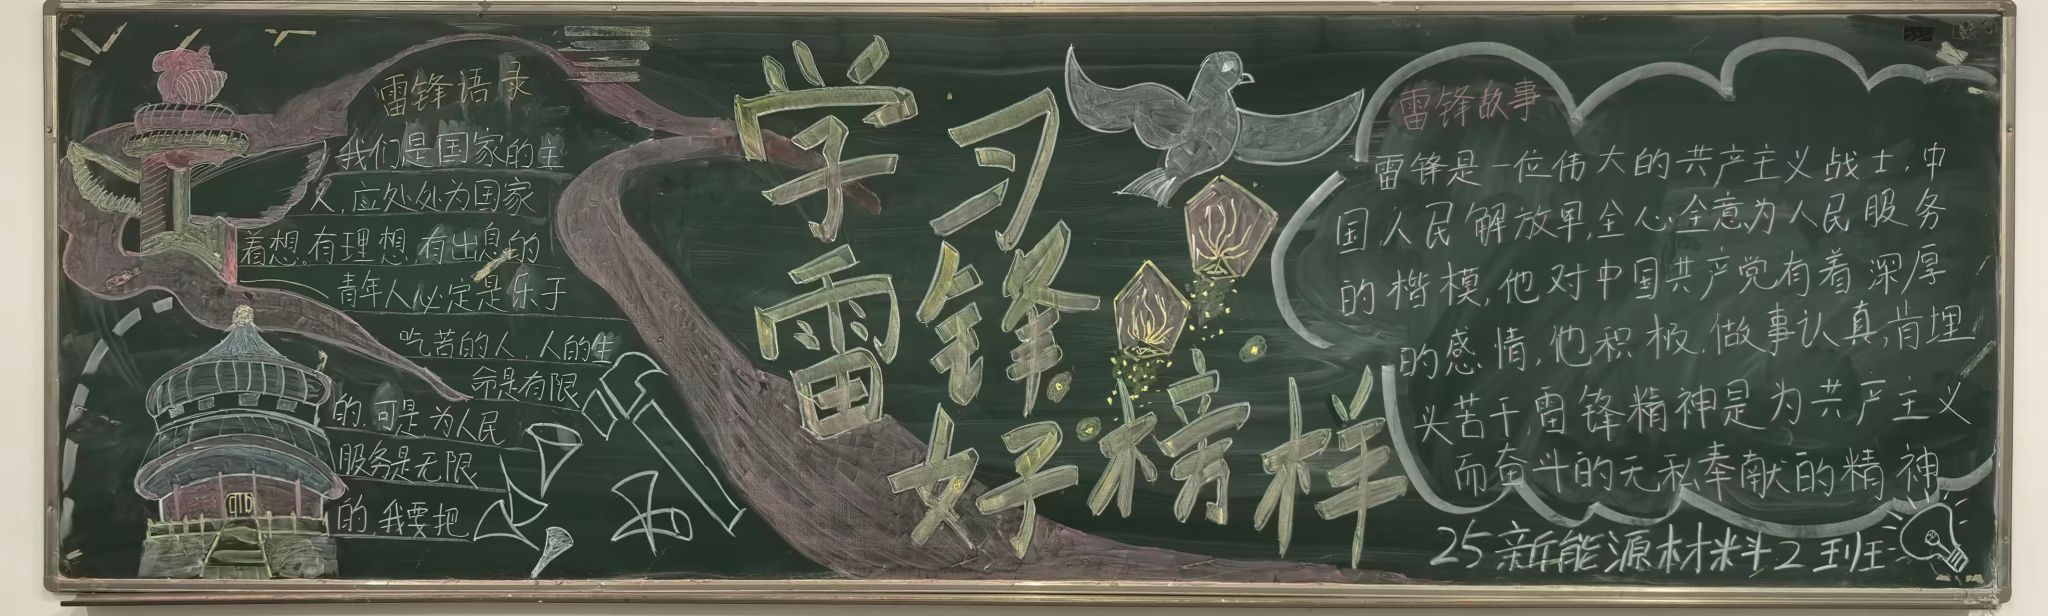 雷锋语录
我们是国家的主
人,应处处为国家
着想。有理想,有出息的
青年人必定是乐于
吃苦的人,人的生
命是有限
的,可是为人民
服务是无限
的,我要把
学习
雷锋
好榜样
雷锋故事
雷锋是一位伟大的共产主义战士,中
国人民解放军,全心全意为人民服务
的楷模,他对中国共产党有着深厚
的感情,他积极,做事认真,肯埋
头苦干,雷锋精神是为共产主义
而奋斗的无私奉献的精神
25新能源材料2班